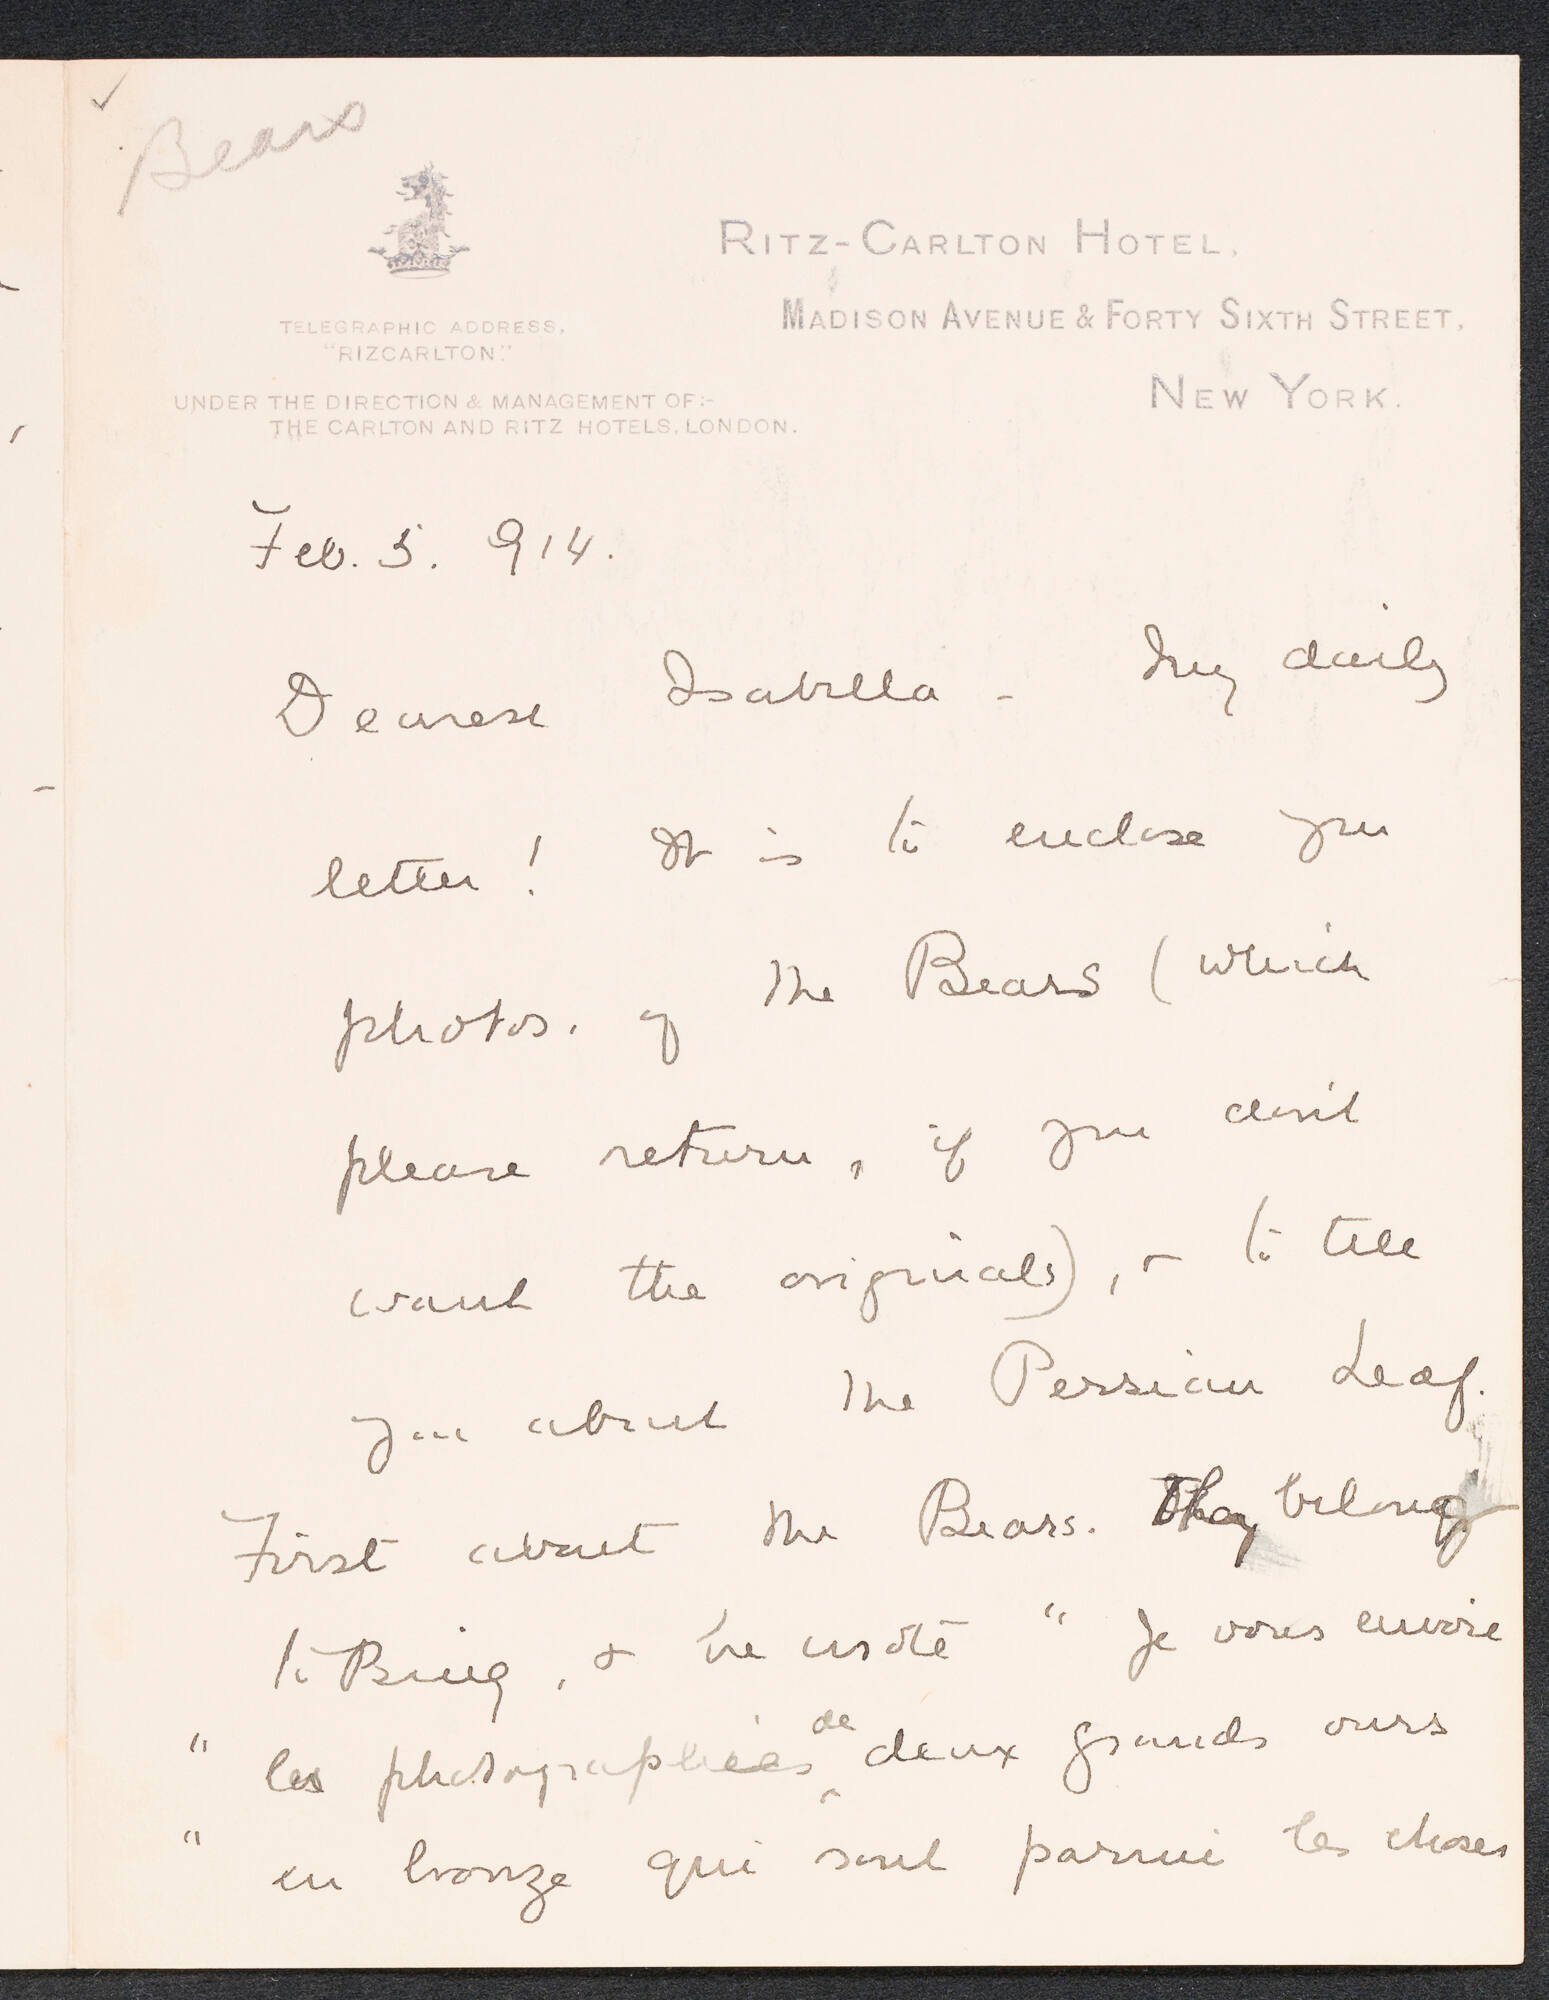 Bears
RITZ-CARLTON HOTEL,
MADISON AVENUE & FORTY SIXTH STREET,
NEW YORK.
TELEGRAPHIC ADDRESS,
"RIZCARLTON."
UNDER THE DIRECTION & MANAGEMENT OF:-
THE CARLTON AND RITZ HOTELS, LONDON.
Feb. 5. 914.
Dearest Isabella - My daily
letter! It is to enclose you
photos. of the Bears (which
please return, if you don't
want the originals), & to tell
you about the Persian Leaf.
First about the Bears. They belong
to Bing, & he wrote " Je vous envoie
" les photographies de deux grands ours
" en bronze qui sont parmi les choses